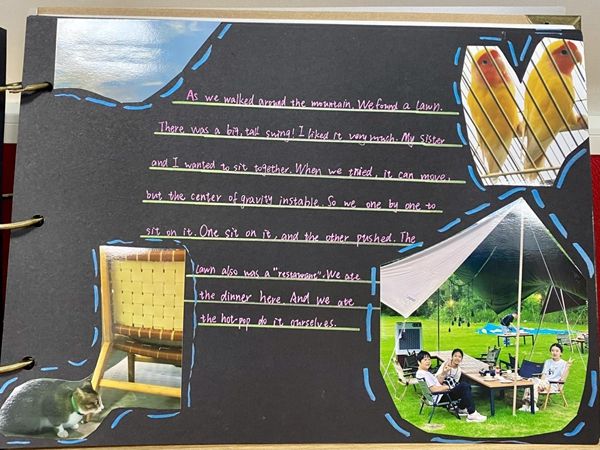 As we walked around the mountain. We found a lawn.
There was a big, tall swing! I liked it very much. My sister
and I wanted to sit together. When we tided, it can move,
but the center of gravity instable. So we one by one to
sit on it. One sit on it, and the other pushed. The
lawn also was a "restaurant". We ate
the dinner here. And we ate
the hot-pop do it ourselves.